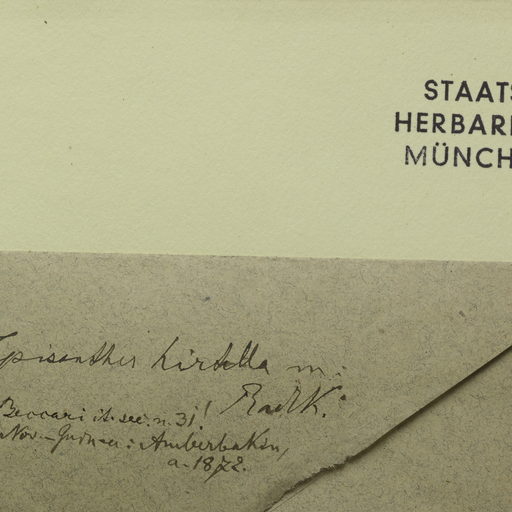 STAATS
HERBARI
MÜNCH
episanthes hirtella m:
RadlK.
Beccari it. sec. n. 31!
Nov.-Guinea: Amberbakin,
a. 1872.